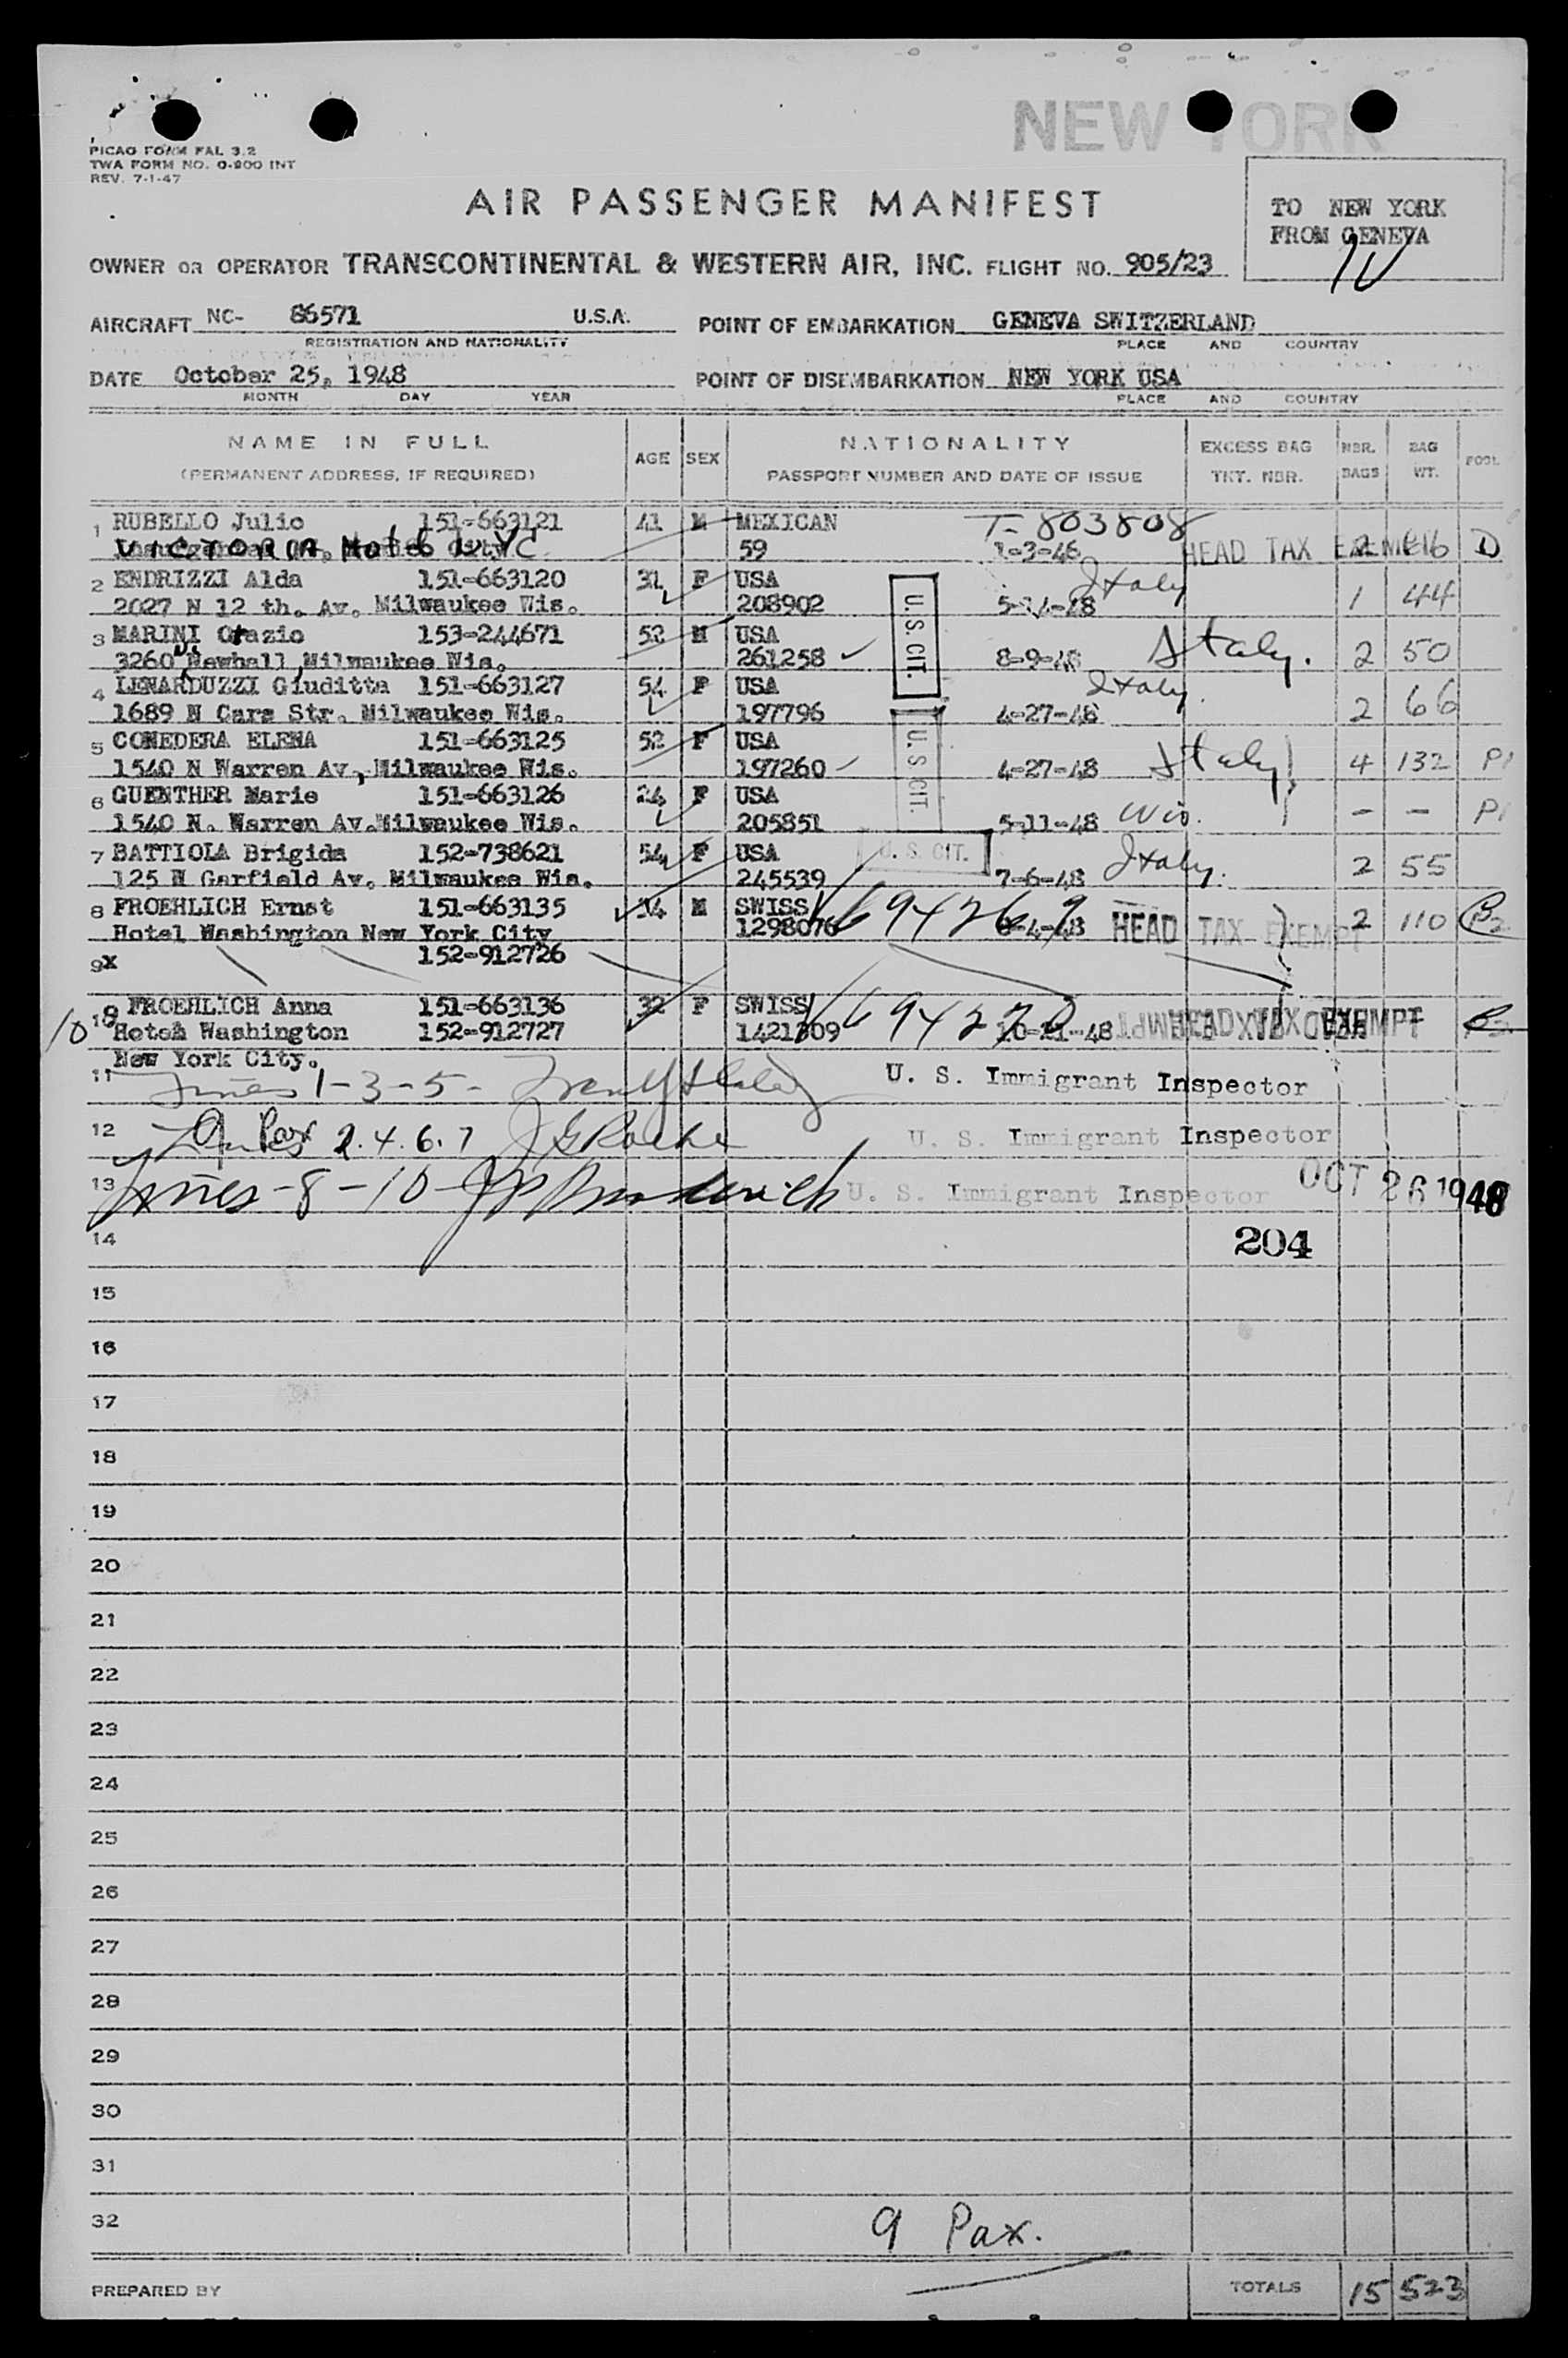 NEW YORK
PICAO FORM FAL 3.2
TWA FORM NO. O-800 INT
REV. 7-1-47
AIR PASSENGER MANIFEST
TO NEW YORK
FROM GENEVA
OWNER OR OPERATOR TRANSCONTINENTAL & WESTERN AIR, INC. FLIGHT NO. 905/23
AIRCRAFT NC- 86571 U.S.A. POINT OF EMBARKATION GENEVA SWITZERLAND
REGISTRATION AND NATIONALITY PLACE AND COUNTRY
DATE October 25, 1948 POINT OF DISEMBARKATION NEW YORK USA
MONTH DAY YEAR PLACE AND COUNTRY
NAME IN FULL AGE SEX NATIONALITY EXCESS BAG NBR. BAG
(PERMANENT ADDRESS, IF REQUIRED) PASSPORT NUMBER AND DATE OF ISSUE TKT. NBR. BAGS WT.
1 RUBELLO Julio 151-663121 41 M MEXICAN T-803808
VICTORIA Hotel NYC 59 1-3-46 HEAD TAX EXEMPT 2 D
2 ENDRIZZI Alda 151-663120 31 F USA Italy
2027 N 12 th. Av. Milwaukee Wis. 208902 5-14-48 1 44
3 MARINI Orazio 153-244671 52 M USA U.S. CIT. Italy.
3260 N. Newhall, Milwaukee Wis. 261258 8-9-48 2 50
4 LENARDUZZI Giuditta 151-663127 54 F USA Italy.
1689 N Cars Str. Milwaukee Wis. 197796 4-27-48 2 66
5 CONEDERA ELENA 151-663125 52 F USA U.S. CIT. Italy
1540 N Warren Av, Milwaukee Wis. 197260 4-27-48 4 132 P1
6 GUENTHER Marie 151-663126 24 F USA
1540 N. Warren Av. Milwaukee Wis. 205851 5-11-48 Wis. - - P1
7 BATTIOLA Brigida 152-738621 54 F USA U. S. CIT. Italy.
125 N Garfield Av. Milwaukee Wis. 245539 7-6-48 2 55
8 FROEHLICH Ernst 151-663135 34 M SWISS 694269
Hotel Washington New York City 1298076 6-4-48 HEAD TAX EXEMPT 2 110
9x 152-912726
10 FROEHLICH Anna 151-663136 32 F SWISS 694270
Hotel Washington 152-912727 1421309 10-11-48 HEAD TAX EXEMPT
New York City.
11 Lines 1-3-5- U. S. Immigrant Inspector
12 9 Pax 2.4.6.7 U. S. Immigrant Inspector
13 Lines-8-10- U. S. Immigrant Inspector OCT 26 1948
14 204
15
16
17
18
19
20
21
22
23
24
25
26
27
28
29
30
31
32
9 Pax.
PREPARED BY TOTALS 15 523